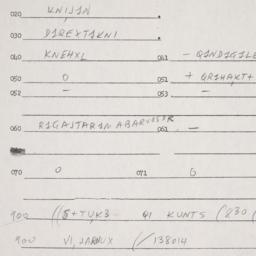 020 KNIJIN
030 DIREXTIKNI
040 KNEHXL 041 - QINDIGILE
050 0 051 + QRIHAKT+
052 - 053 -
060 RIGAJTARIN 061 -
070 0 071 6
900 QI KUNTS
900 VI, JARAUX // 138014